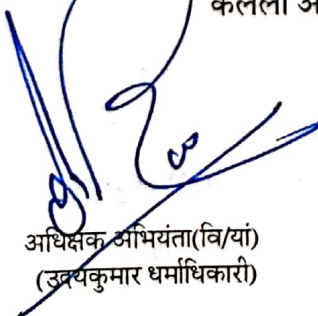 केलेली अ
अधिक्षक अभियंता(वि/यां)
(उदयकुमार धर्माधिकारी)